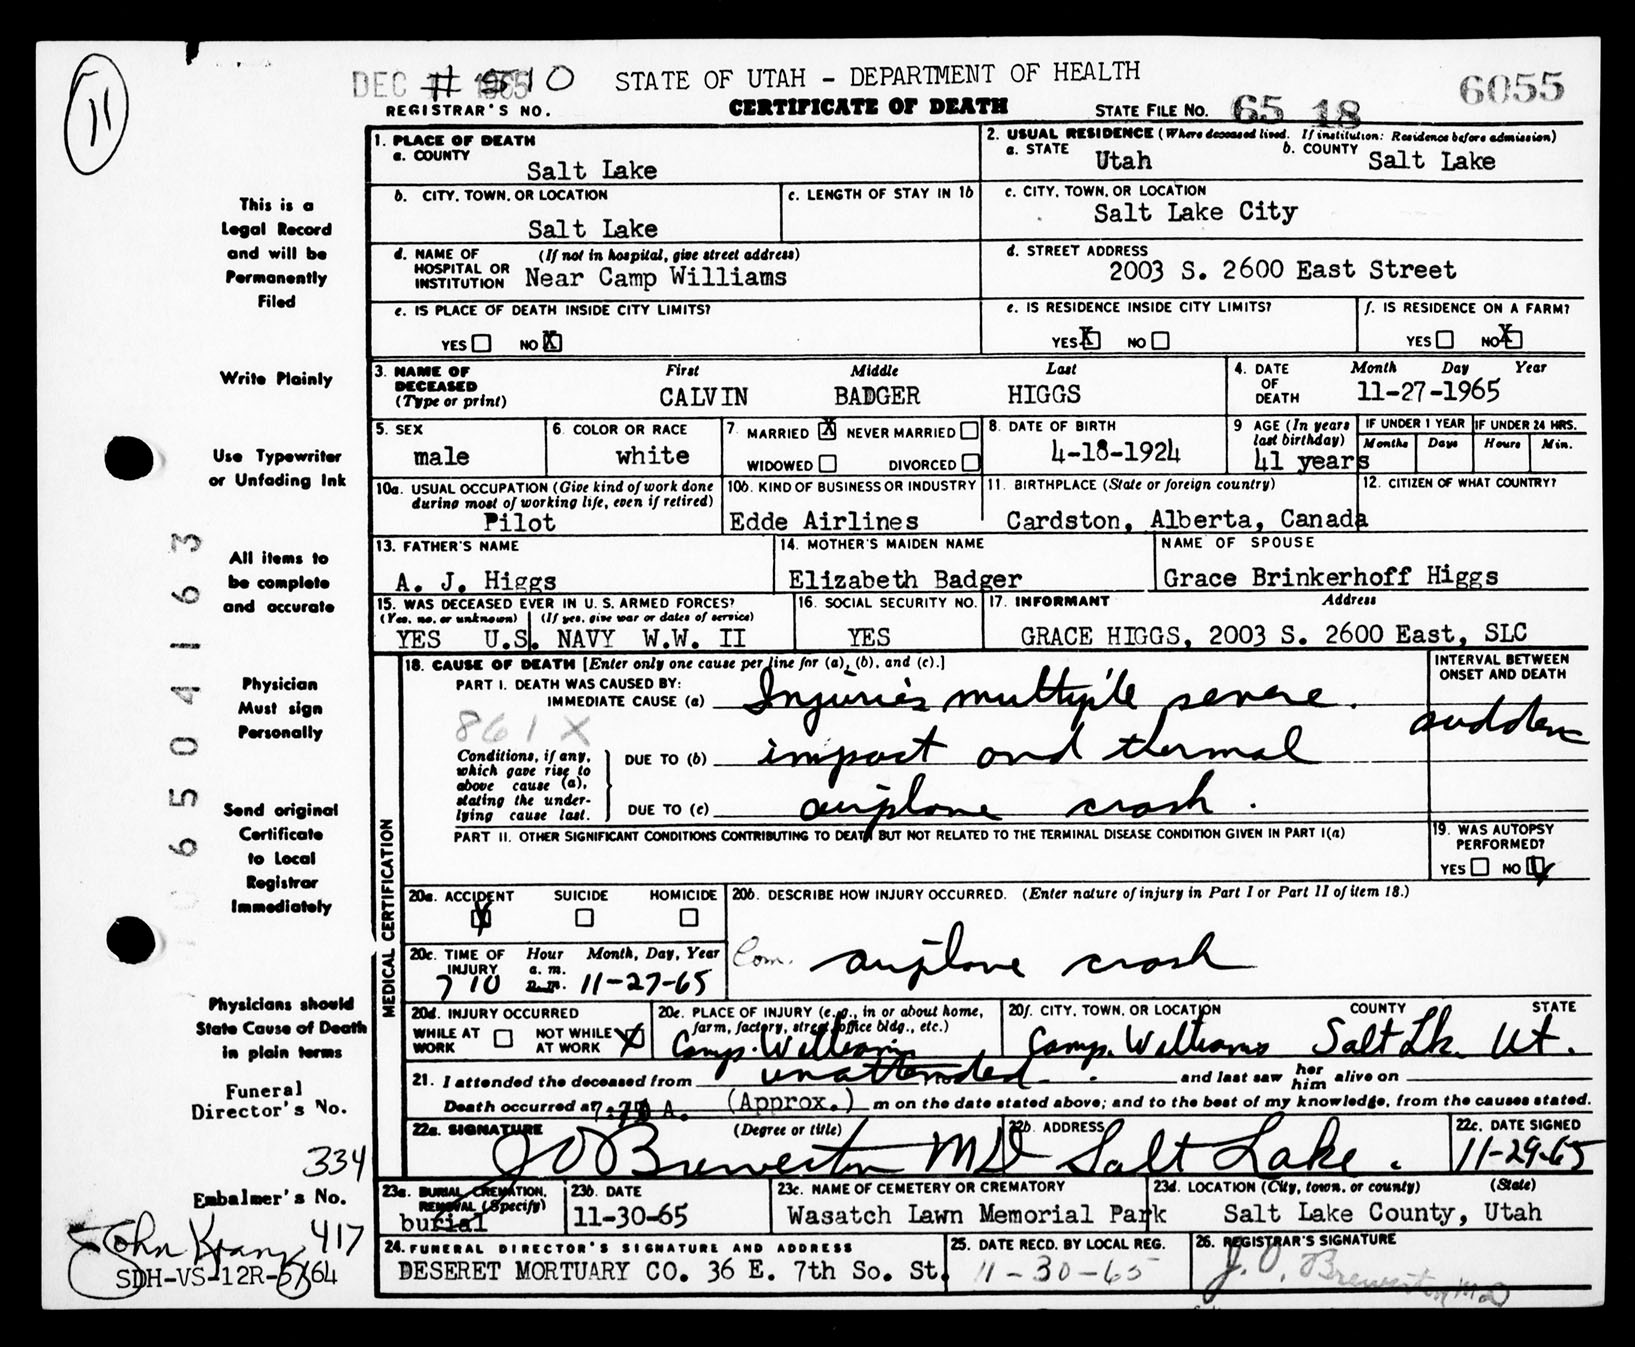 11
DEC 1965 # 510
STATE OF UTAH - DEPARTMENT OF HEALTH
6055
REGISTRAR'S NO.
CERTIFICATE OF DEATH
STATE FILE NO. 65 18
1. PLACE OF DEATH
a. COUNTY
Salt Lake
2. USUAL RESIDENCE (Where deceased lived. If institution: Residence before admission)
a. STATE Utah b. COUNTY Salt Lake
b. CITY, TOWN, OR LOCATION
Salt Lake
c. LENGTH OF STAY IN 1b
c. CITY, TOWN, OR LOCATION
Salt Lake City
d. NAME OF HOSPITAL OR INSTITUTION (If not in hospital, give street address)
Near Camp Williams
d. STREET ADDRESS
2003 S. 2600 East Street
e. IS PLACE OF DEATH INSIDE CITY LIMITS?
YES NO X
e. IS RESIDENCE INSIDE CITY LIMITS?
YES X NO
f. IS RESIDENCE ON A FARM?
YES NO X
3. NAME OF DECEASED (Type or print)
First Middle Last
CALVIN BADGER HIGGS
4. DATE OF DEATH
Month Day Year
11-27-1965
5. SEX
male
6. COLOR OR RACE
white
7. MARRIED X NEVER MARRIED
WIDOWED DIVORCED
8. DATE OF BIRTH
4-18-1924
9 AGE (In years last birthday)
41 years
IF UNDER 1 YEAR
Months Days
IF UNDER 24 HRS.
Hours Min.
10a. USUAL OCCUPATION (Give kind of work done during most of working life, even if retired)
Pilot
10b. KIND OF BUSINESS OR INDUSTRY
Edde Airlines
11. BIRTHPLACE (State or foreign country)
Cardston, Alberta, Canada
12. CITIZEN OF WHAT COUNTRY?
13. FATHER'S NAME
A. J. Higgs
14. MOTHER'S MAIDEN NAME
Elizabeth Badger
NAME OF SPOUSE
Grace Brinkerhoff Higgs
15. WAS DECEASED EVER IN U.S. ARMED FORCES?
(Yes, no, or unknown) (If yes, give war or dates of service)
YES U.S. NAVY W.W. II
16. SOCIAL SECURITY NO.
YES
17. INFORMANT Address
GRACE HIGGS, 2003 S. 2600 East, SLC
MEDICAL CERTIFICATION
18. CAUSE OF DEATH [Enter only one cause per line for (a), (b), and (c).]
INTERVAL BETWEEN ONSET AND DEATH
PART I. DEATH WAS CAUSED BY:
IMMEDIATE CAUSE (a) Injuries multiple severe.
sudden
861X
Conditions, if any, which gave rise to above cause (a), stating the underlying cause last.
DUE TO (b) impact and thermal
DUE TO (c) airplane crash.
PART II. OTHER SIGNIFICANT CONDITIONS CONTRIBUTING TO DEATH BUT NOT RELATED TO THE TERMINAL DISEASE CONDITION GIVEN IN PART I(a)
19. WAS AUTOPSY PERFORMED?
YES NO
20a. ACCIDENT SUICIDE HOMICIDE
X
20b. DESCRIBE HOW INJURY OCCURRED. (Enter nature of injury in Part I or Part II of item 18.)
Com. airplane crash
20c. TIME OF INJURY Hour Month, Day, Year
7 10 a.m. p.m. 11-27-65
20d. INJURY OCCURRED
WHILE AT WORK NOT WHILE AT WORK X
20e. PLACE OF INJURY (e.g., in or about home, farm, factory, street, office bldg., etc.)
Camp. Williams
20f. CITY, TOWN, OR LOCATION COUNTY STATE
Camp. Williams Salt Lk. Ut.
21. I attended the deceased from unattended and last saw her him alive on
Death occurred at A. (Approx.) m on the date stated above; and to the best of my knowledge, from the causes stated.
22a. SIGNATURE (Degree or title)
J O Brewerton MD
22b. ADDRESS
Salt Lake.
22c. DATE SIGNED
11-29-65
23a. BURIAL, CREMATION, REMOVAL (Specify)
burial
23b. DATE
11-30-65
23c. NAME OF CEMETERY OR CREMATORY
Wasatch Lawn Memorial Park
23d. LOCATION (City, town, or county) (State)
Salt Lake County, Utah
24. FUNERAL DIRECTOR'S SIGNATURE AND ADDRESS
DESERET MORTUARY CO. 36 E. 7th So. St.
25. DATE RECD. BY LOCAL REG.
11-30-65
26. REGISTRAR'S SIGNATURE
J. O. Brewerton MD
This is a
Legal Record
and will be
Permanently
Filed
Write Plainly
Use Typewriter
or Unfading Ink
All items to
be complete
and accurate
Physician
Must sign
Personally
Send original
Certificate
to Local
Registrar
Immediately
Physicians should
State Cause of Death
in plain terms
Funeral
Director's No.
334
Embalmer's No.
417
John
SDH-VS-12R-5/64
06504163